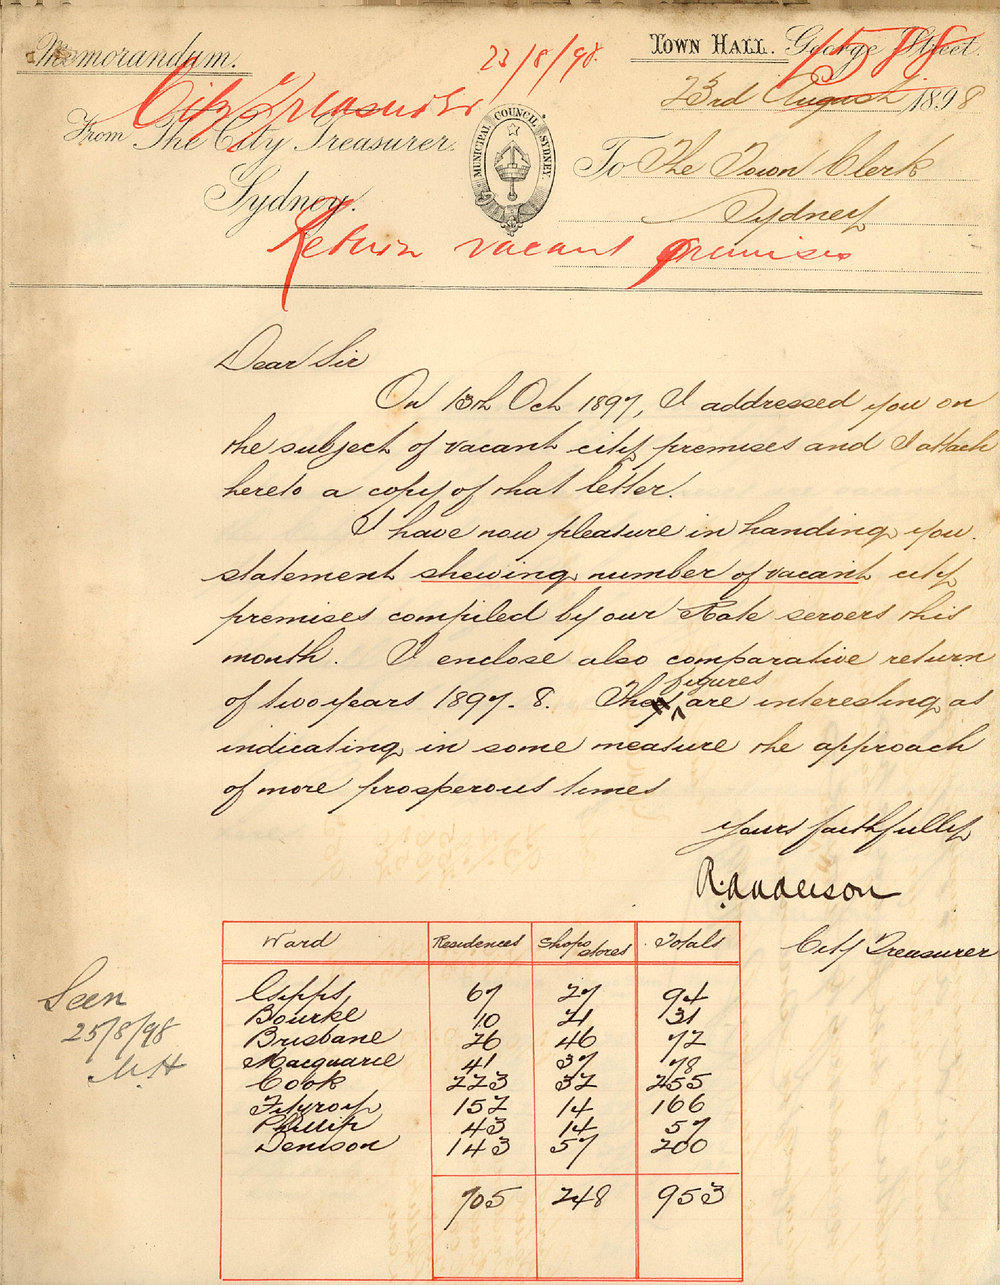 Memorandum.
23/8/98.
Town Hall. George Street.
1588
City Treasurer
23rd August 1898
From The City Treasurer.
Sydney.
MUNICIPAL COUNCIL SYDNEY
To The Town Clerk
Sydney
Return vacant premises
Dear Sir
On 13th Oct 1897, I addressed you on
the subject of vacant city premises and I attach
hereto a copy of that letter.
I have now pleasure in handing you
statement shewing number of vacant city
premises compiled by our Rate servers this
month. I enclose also comparative return
of two years 1897-8. The figures are interesting as
indicating in some measure the approach
of more prosperous times
Yours faithfully
City Treasurer
Ward Residences Shops stores Totals
Gipps 67 27 94
Bourke 10 21 31
Brisbane 26 46 72
Macquarie 41 37 78
Cook 223 32 255
Fitzroy 152 14 166
Phillip 43 14 57
Denison 143 57 200
705 248 953
Seen
25/8/98